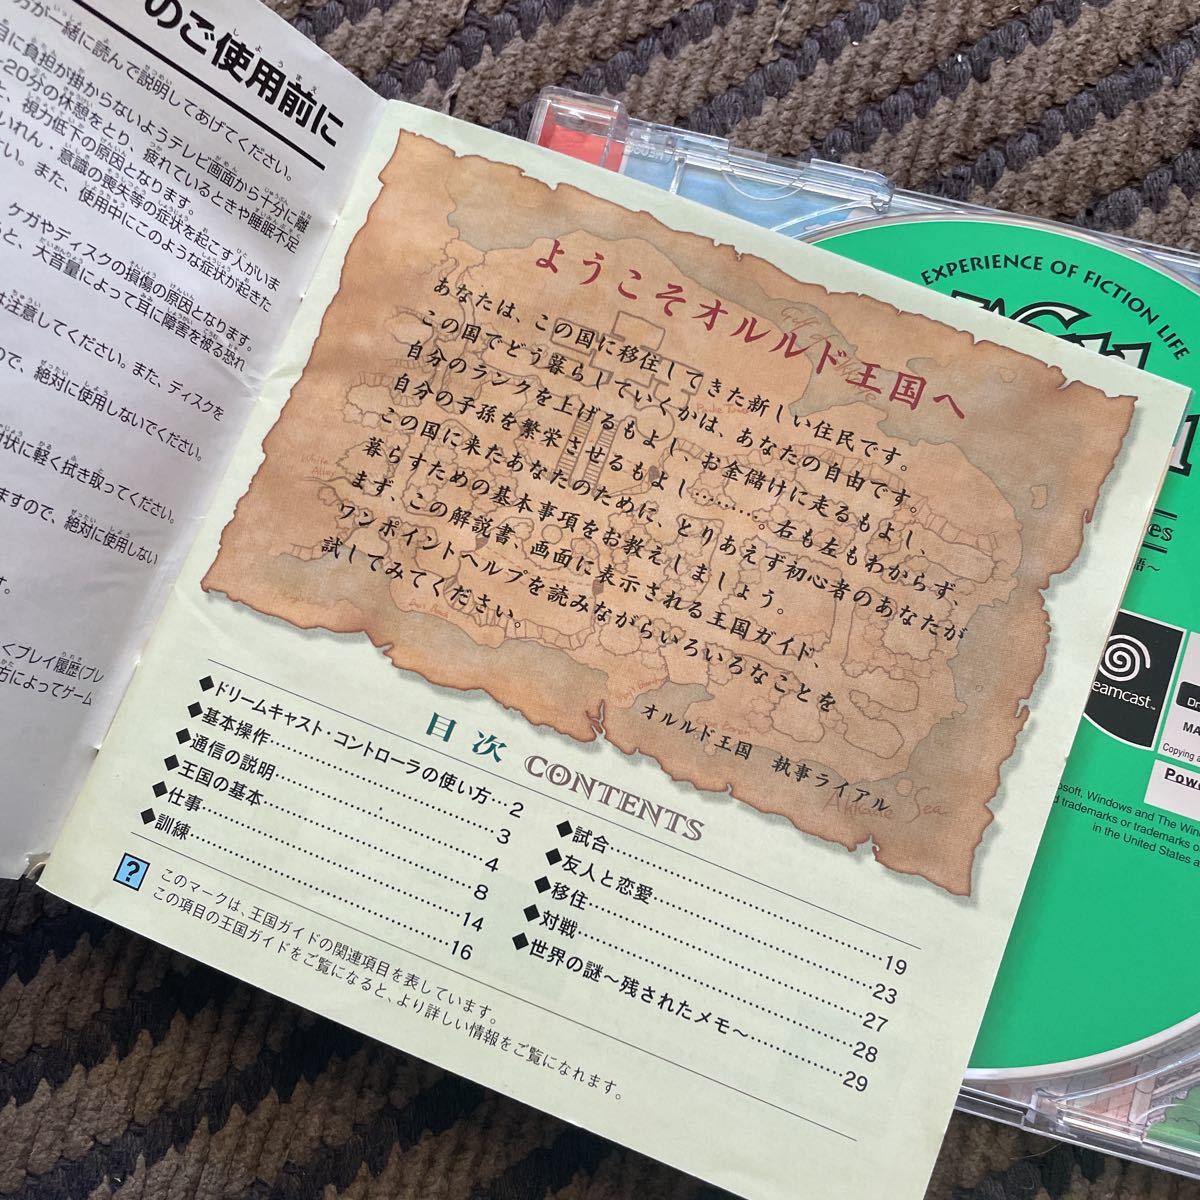 のご使用前に
方が一緒に読んで説明してあげてください。
目に負担が掛からないようテレビ画面から十分に離
20分の休憩をとり、疲れているときや睡眠不足
と、視力低下の原因となります。
いれん・意識の喪失等の症状を起こす人がいま
さい。また、使用中にこのような症状が起きた
ケガやディスクの損傷の原因となります。
ると、大音量によって耳に障害を被る恐れ
は注意してください。また、ディスクを
ので、絶対に使用しないでください。
射状に軽く拭き取ってください。
ますので、絶対に使用しない
す。
くプレイ履歴(プレ
方によってゲーム
ようこそオルルド王国へ
あなたは、この国に移住してきた新しい住民です。
この国でどう暮らしていくかは、あなたの自由です。
自分のランクを上げるもよし、お金儲けに走るもよし、
自分の子孫を繁栄させるもよし………。右も左もわからず、
この国に来たあなたのために、とりあえず初心者のあなたが
暮らすための基本事項をお教えしましょう。
まず、この解説書、画面に表示される王国ガイド、
ワンポイントヘルプを読みながらいろいろなことを
試してみてください。
オルルド王国 執事ライアル
目次 CONTENTS
◆ドリームキャスト・コントローラの使い方…2
◆基本操作……3
◆通信の説明……4
◆王国の基本……8
◆仕事……14
◆訓練……16
◆試合……19
◆友人と恋愛……23
◆移住……27
◆対戦……28
◆世界の謎～残されたメモ～……29
? このマークは、王国ガイドの関連項目を表しています。
この項目の王国ガイドをご覧になると、より詳しい情報をご覧になれます。
EXPERIENCE OF FICTION LIFE
語～
eamcast™
Copying a
Powe
osoft, Windows and The Wind
d trademarks or trademarks o
in the United States a